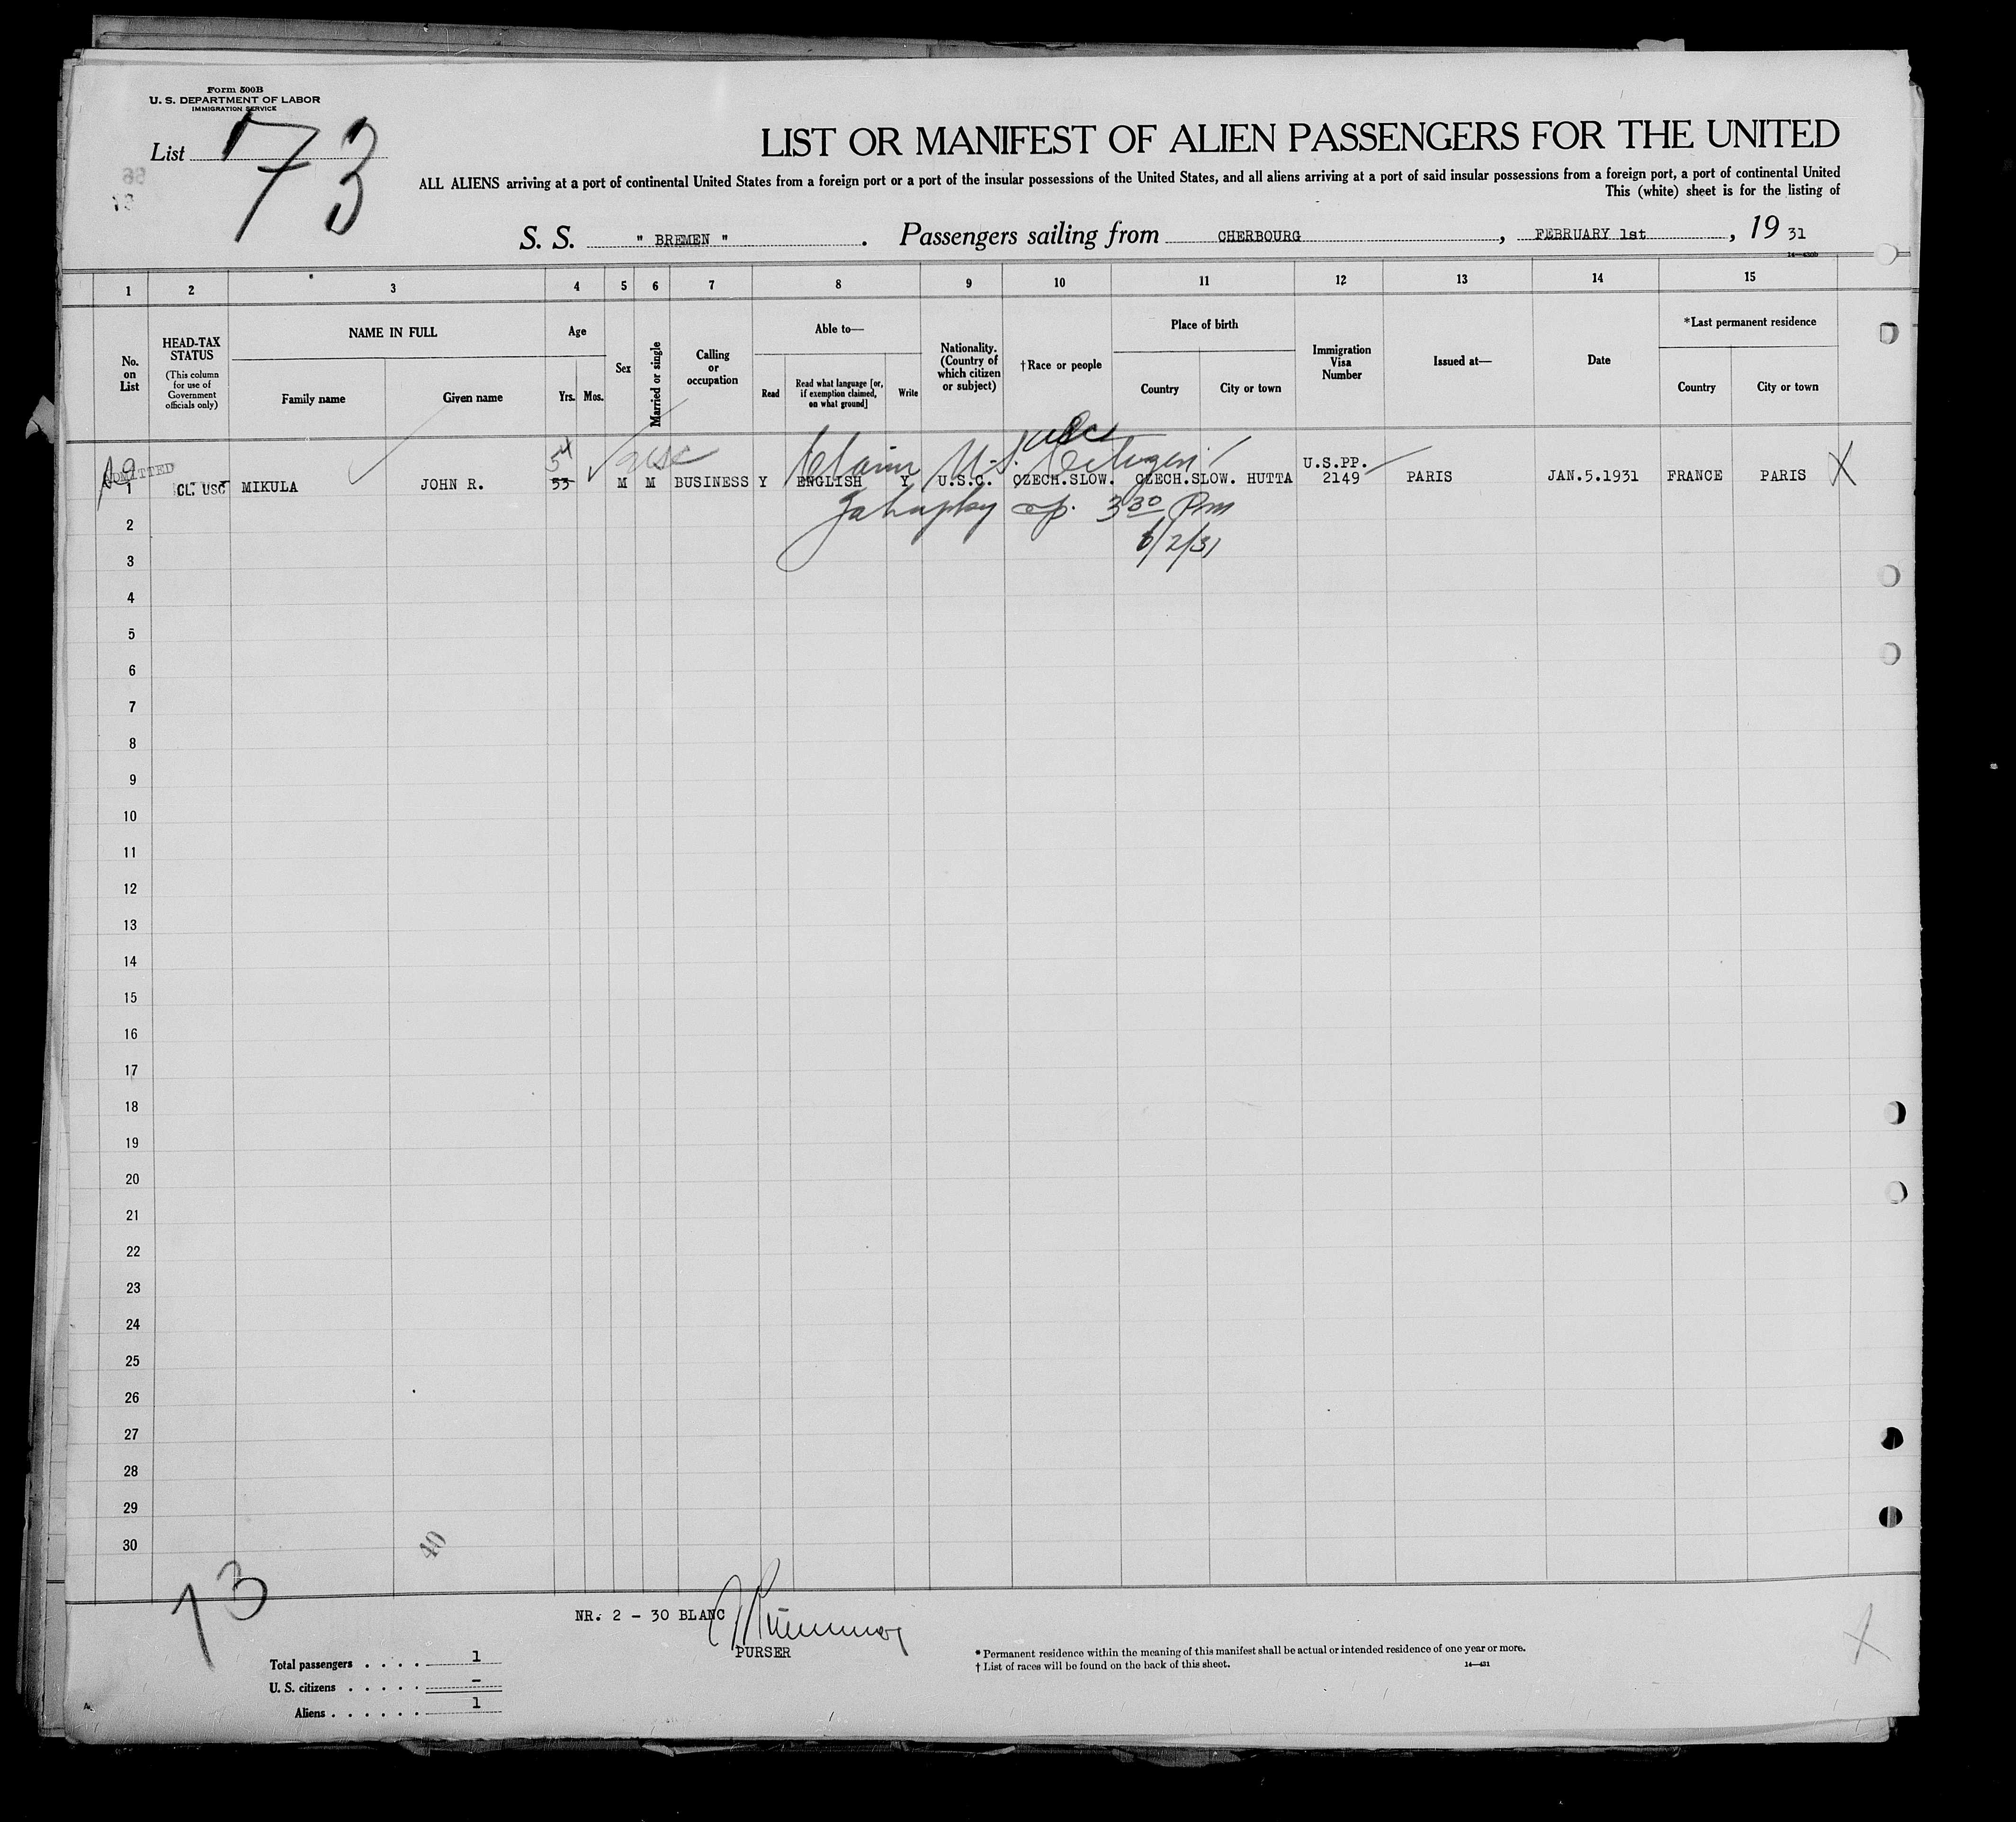 Form 500B
U. S. DEPARTMENT OF LABOR
IMMIGRATION SERVICE
List 73
LIST OR MANIFEST OF ALIEN PASSENGERS FOR THE UNITED
ALL ALIENS arriving at a port of continental United States from a foreign port or a port of the insular possessions of the United States, and all aliens arriving at a port of said insular possessions from a foreign port, a port of continental United
This (white) sheet is for the listing of
S. S. " BREMEN " . Passengers sailing from CHERBOURG , FEBRUARY 1st , 19 31
14—430b
1 2 3 4 5 6 7 8 9 10 11 12 13 14 15
No. on List
HEAD-TAX STATUS
(This column for use of Government officials only)
NAME IN FULL
Family name
Given name
Age
Yrs.
Mos.
Sex
Married or single
Calling or occupation
Able to—
Read
Read what language [or, if exemption claimed, on what ground]
Write
Nationality. (Country of which citizen or subject)
† Race or people
Place of birth
Country
City or town
Immigration Visa Number
Issued at—
Date
*Last permanent residence
Country
City or town
ADMITTED
54 usc Claim U.S. Citizen usc
1 CL. USC MIKULA JOHN R. 53 M M BUSINESS Y ENGLISH Y U.S.C. CZECH.SLOW. CZECH.SLOW. HUTTA U.S.PP. 2149 PARIS JAN.5.1931 FRANCE PARIS X
3 30 Pm
6/2/31
2
3
4
5
6
7
8
9
10
11
12
13
14
15
16
17
18
19
20
21
22
23
24
25
26
27
28
29
30
40
73
NR. 2 - 30 BLANC
PURSER
Total passengers . . . . 1
U. S. citizens . . . . . –
Aliens . . . . . . 1
* Permanent residence within the meaning of this manifest shall be actual or intended residence of one year or more.
† List of races will be found on the back of this sheet.
14—431
X